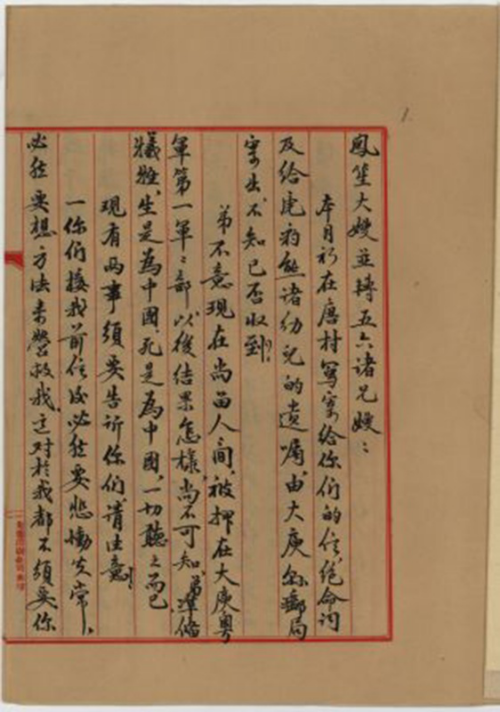 鳳笙大嫂並轉五六諸兄嫂：
本月初在唐村寫寄給你们的信、绝命词
及给虎豹熊诸幼兒的遺嘱，由大庾縣郵局
寄出，不知已否收到？
弟不意現在尚留人间，被押在大庾粤
軍第一軍々部，以後结果怎樣，尚不可知，弟準備
犧牲，生是為中國，死是為中國，一切聽之而已
現有兩事須要告訴你们，请注意！
一你们接我前信後必然要悲慟失常，
必然要想方法来營救我，这对於我都不須要，你